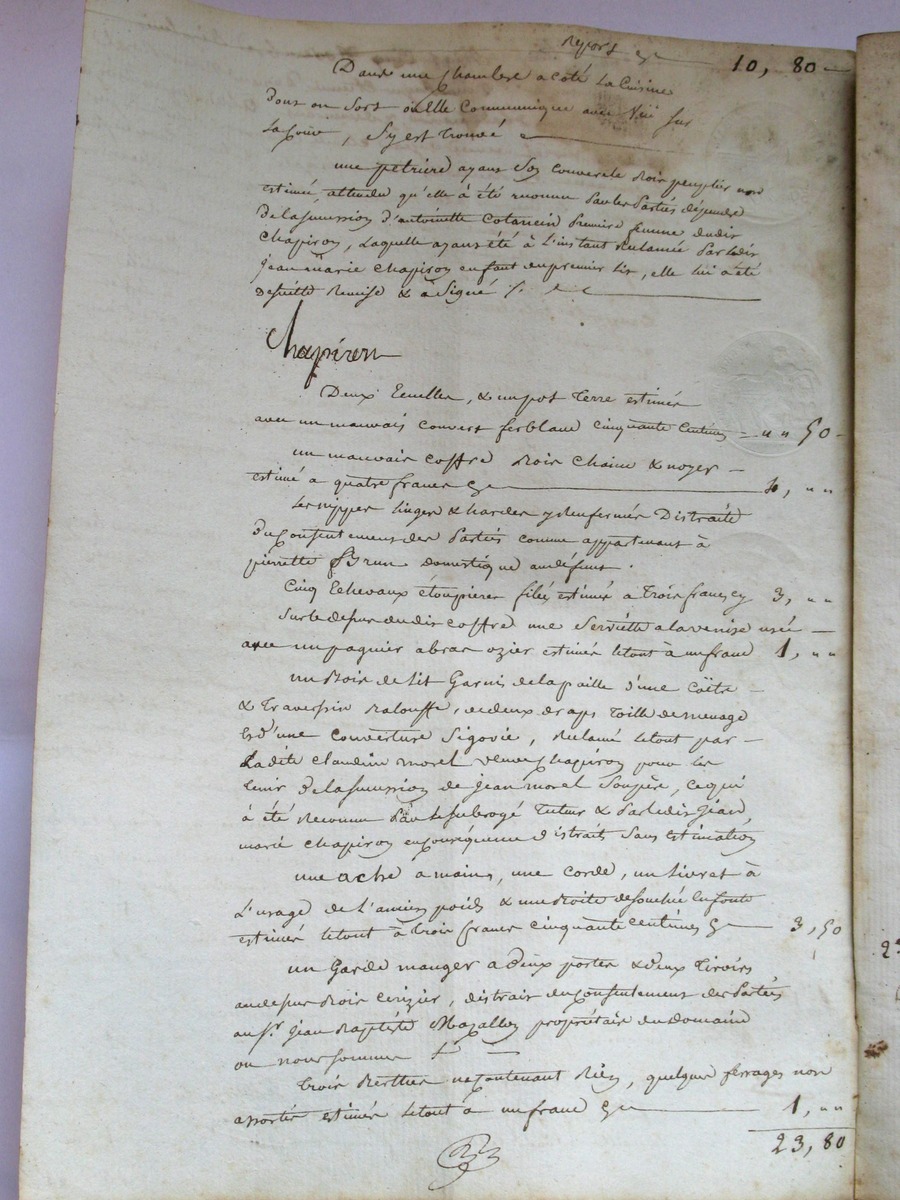 Report 10, 80
Dans une Chambre a coté La Cuisine
Dont on sort où Elle Communique avec sur
La Cour, S'y est trouvé
une petriere ayant Son couvercle Bois peuplier non
estimée, attendu qu'elle à été reconnu Par les Parties dépendre
De la succession d'antoinette Cotancin Premiere femme dudit
Chapiron, Laquelle ayant été à L'instant Reclamée Par Ledit
Jean marie Chapiron enfant du premier Lit, elle lui a été
De suitte Remise & à Signé
Chapiron
Deux Ecuelles, & un pot Terre estimés
avec un mauvais couvert ferblanc cinquante Centimes " " 50
un mauvais coffre Bois Chaine & noyer
estimé a quatre francs 4, " "
Les nippes linges & hardes y Renfermés Distraits
Du Consentement des Parties comme appartenant à
pierrette Brun domestique au défunt.
Cinq Echevaux étoupieres filés estimés a trois francs 3, " "
Sur le depus dudit coffre une Serviette a la venise usée
avec un pagnier a bras ozier estimés le tout à un franc 1, " "
un Bois de Lit Garni de la paille d'une Coëtre
& Traversin Balouffe, de deux draps Toille de menage
Et d'une Couverture Sigovie, Réclamé le tout par
La dite Claudine morel veuve Chapiron pour les
tenir De la Succession de Jean morel Son père, ce qui
à été Reconnu Par le Subrogé Tuteur & Par ledit Jean
marie Chapiron en conséquence distrait Sans estimation
une ache a mains, une corde, un Livret à
L'usage de L'ancien poids & une Boite de fonte
estimés le tout à trois francs cinquante centimes 3, 50
un Garde manger a Deux portes & deux Tiroirs
au depus Bois Cerizier, distrait du Consentement des Parties
au Sr. Jean Baptiste Mazallon propriétaire du Domaine
ou nous sommes
Trois Berthes ne Contenant Rien, quelques ferrages non
assortis estimés le tout a un franc 1, " "
23, 80